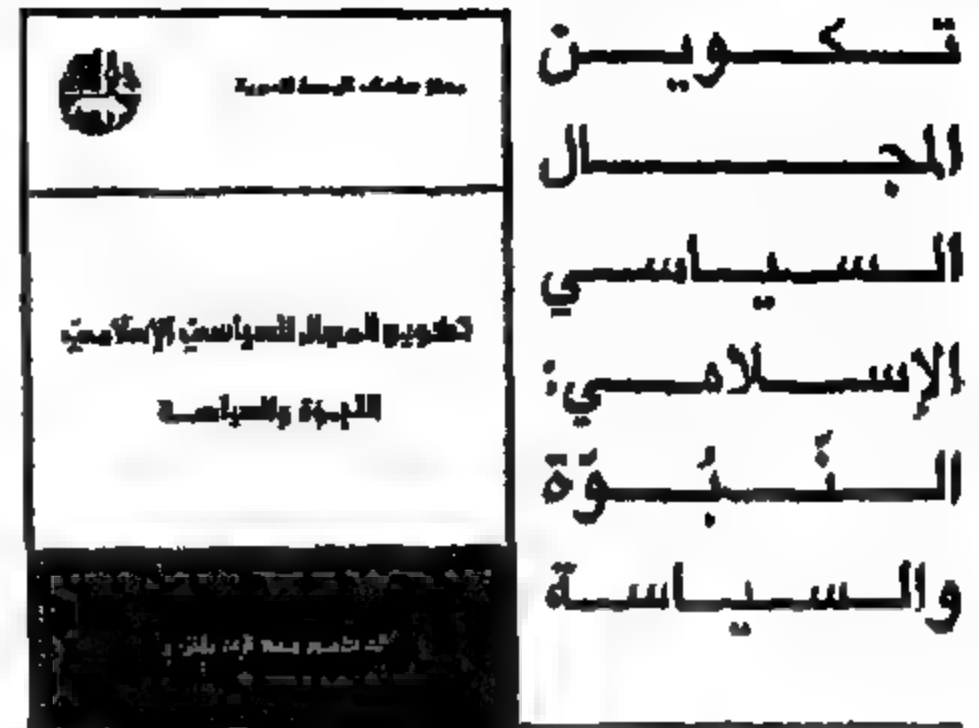 تكوين
المجال
السياسي
الإسلامي:
النُّبُوّة
والسياسة
مركز دراسات الوحدة العربية
تكوين المجال السياسيّ الإسلاميّ
النبوّة والسياسة